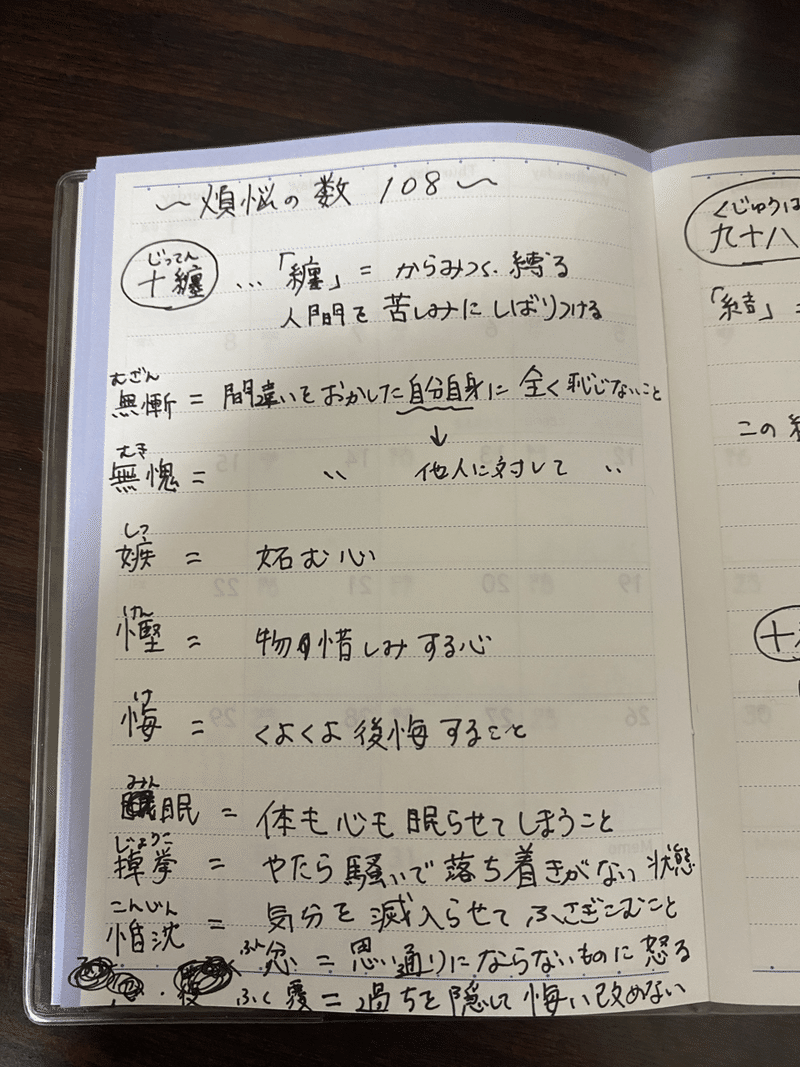 〜煩悩の数 108〜
じってん
十纏 …「纏」= からみつく、縛る
人間を苦しみにしばりつける
むざん
無慚 = 間違いをおかした自分自身に全く恥じないこと
↓
むき
無愧 = 〃 他人に対して 〃
しつ
嫉 = 妬む心
けん
慳 = 物惜しみする心
け
悔 = くよくよ後悔すること
みん
眠 = 体も心も眠らせてしまうこと
じょうこ
掉挙 = やたら騒いで落ち着きがない状態
こんじん
惛沈 = 気分を滅入らせてふさぎこむこと
ふん 忿 = 思い通りにならないものに怒る
ふく 覆 = 過ちを隠して悔い改めない
くじゅうは
九十八
「結」=
この
十